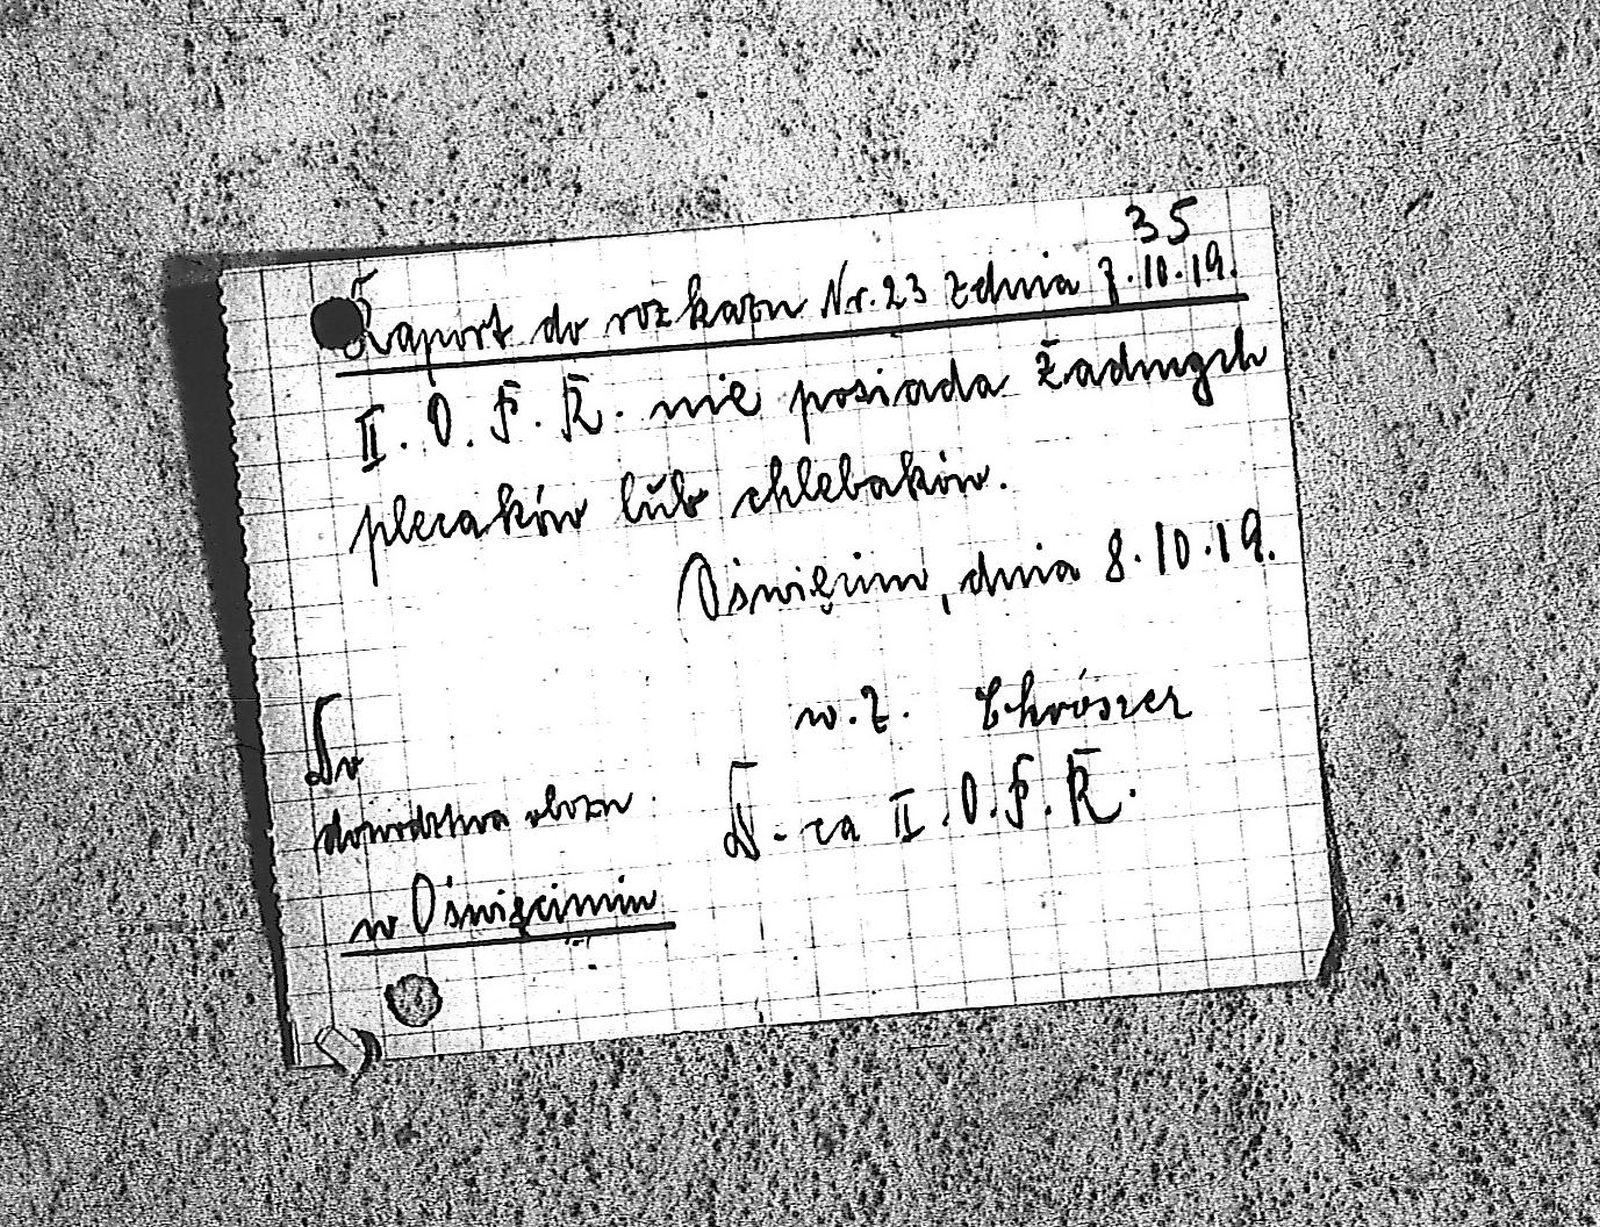 35
Raport do rozkazu Nr. 23 z dnia 7.10.19.
II. O. F. K. nie posiada żadnych
plecaków lub chlebaków.
Oświęcim, dnia 8.10.19.
w. z.
Do
dowodztwa obozu
D-ca II. O. F. K.
w Oświęcimiu